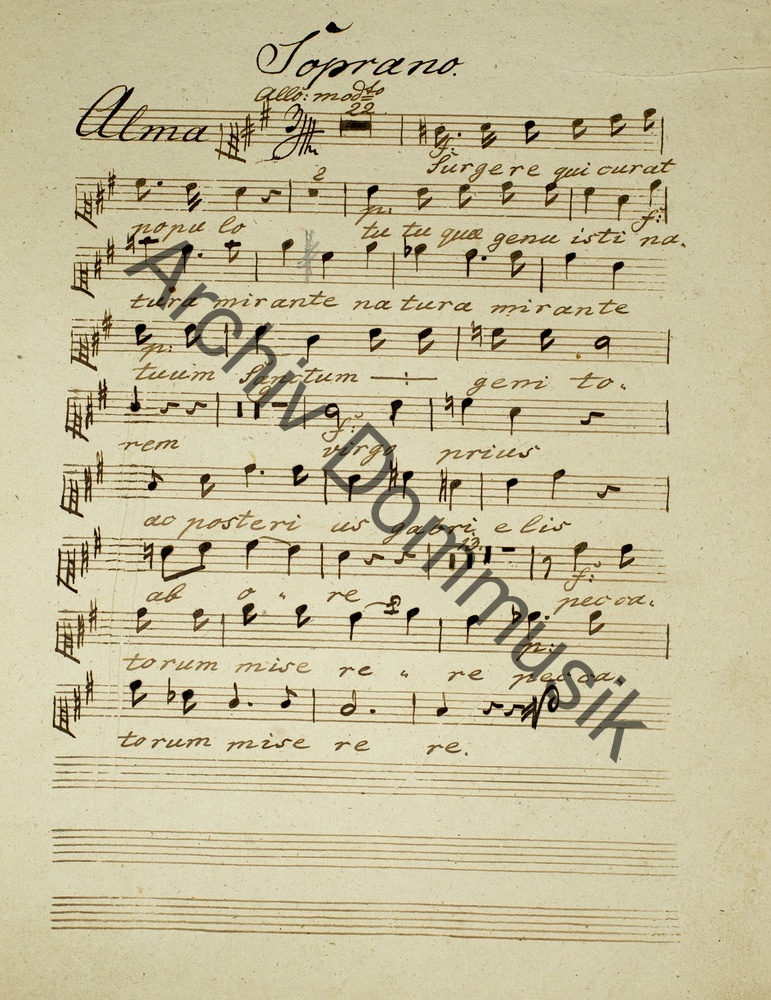 Soprano.
Allo: modto
22
Alma
f:
Surgere qui curat
2
p: f:
populo tu tu quæ genu isti na.
tura mirante natura mirante
p:
tuum Sanctum geni to.
f:
rem virgo prius
ac posteri us gabri elis
13
f:
ab o " re pecca.
p:
torum mise re " re pecca.
torum mise re re.
Archiv Dommusik